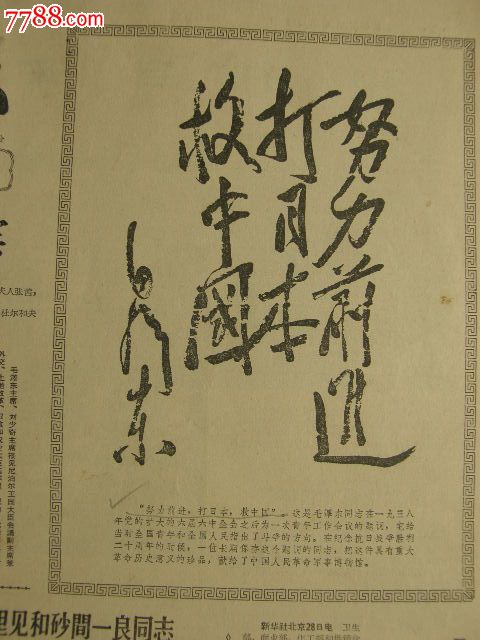 7788.com
努力前進
打日本
救中國
毛澤东
"努力前进，打日本，救中国"。这是毛泽东同志在一九三八
年党的扩大的六届六中全会之后为一次青年工作会议的题词，它给
当时全国青年和全国人民指出了斗争的方向。在纪念抗日战争胜利
二十周年的时候，一位长期保存这个题词的同志，把这件具有重大
革命历史意义的珍品，献给了中国人民革命军事博物馆。
夫人张茜，
毛泽东主席、刘少奇主席接见尼泊尔王国大臣会议副主席兼
里见和砂間一良同志
新华社北京28日电 卫生